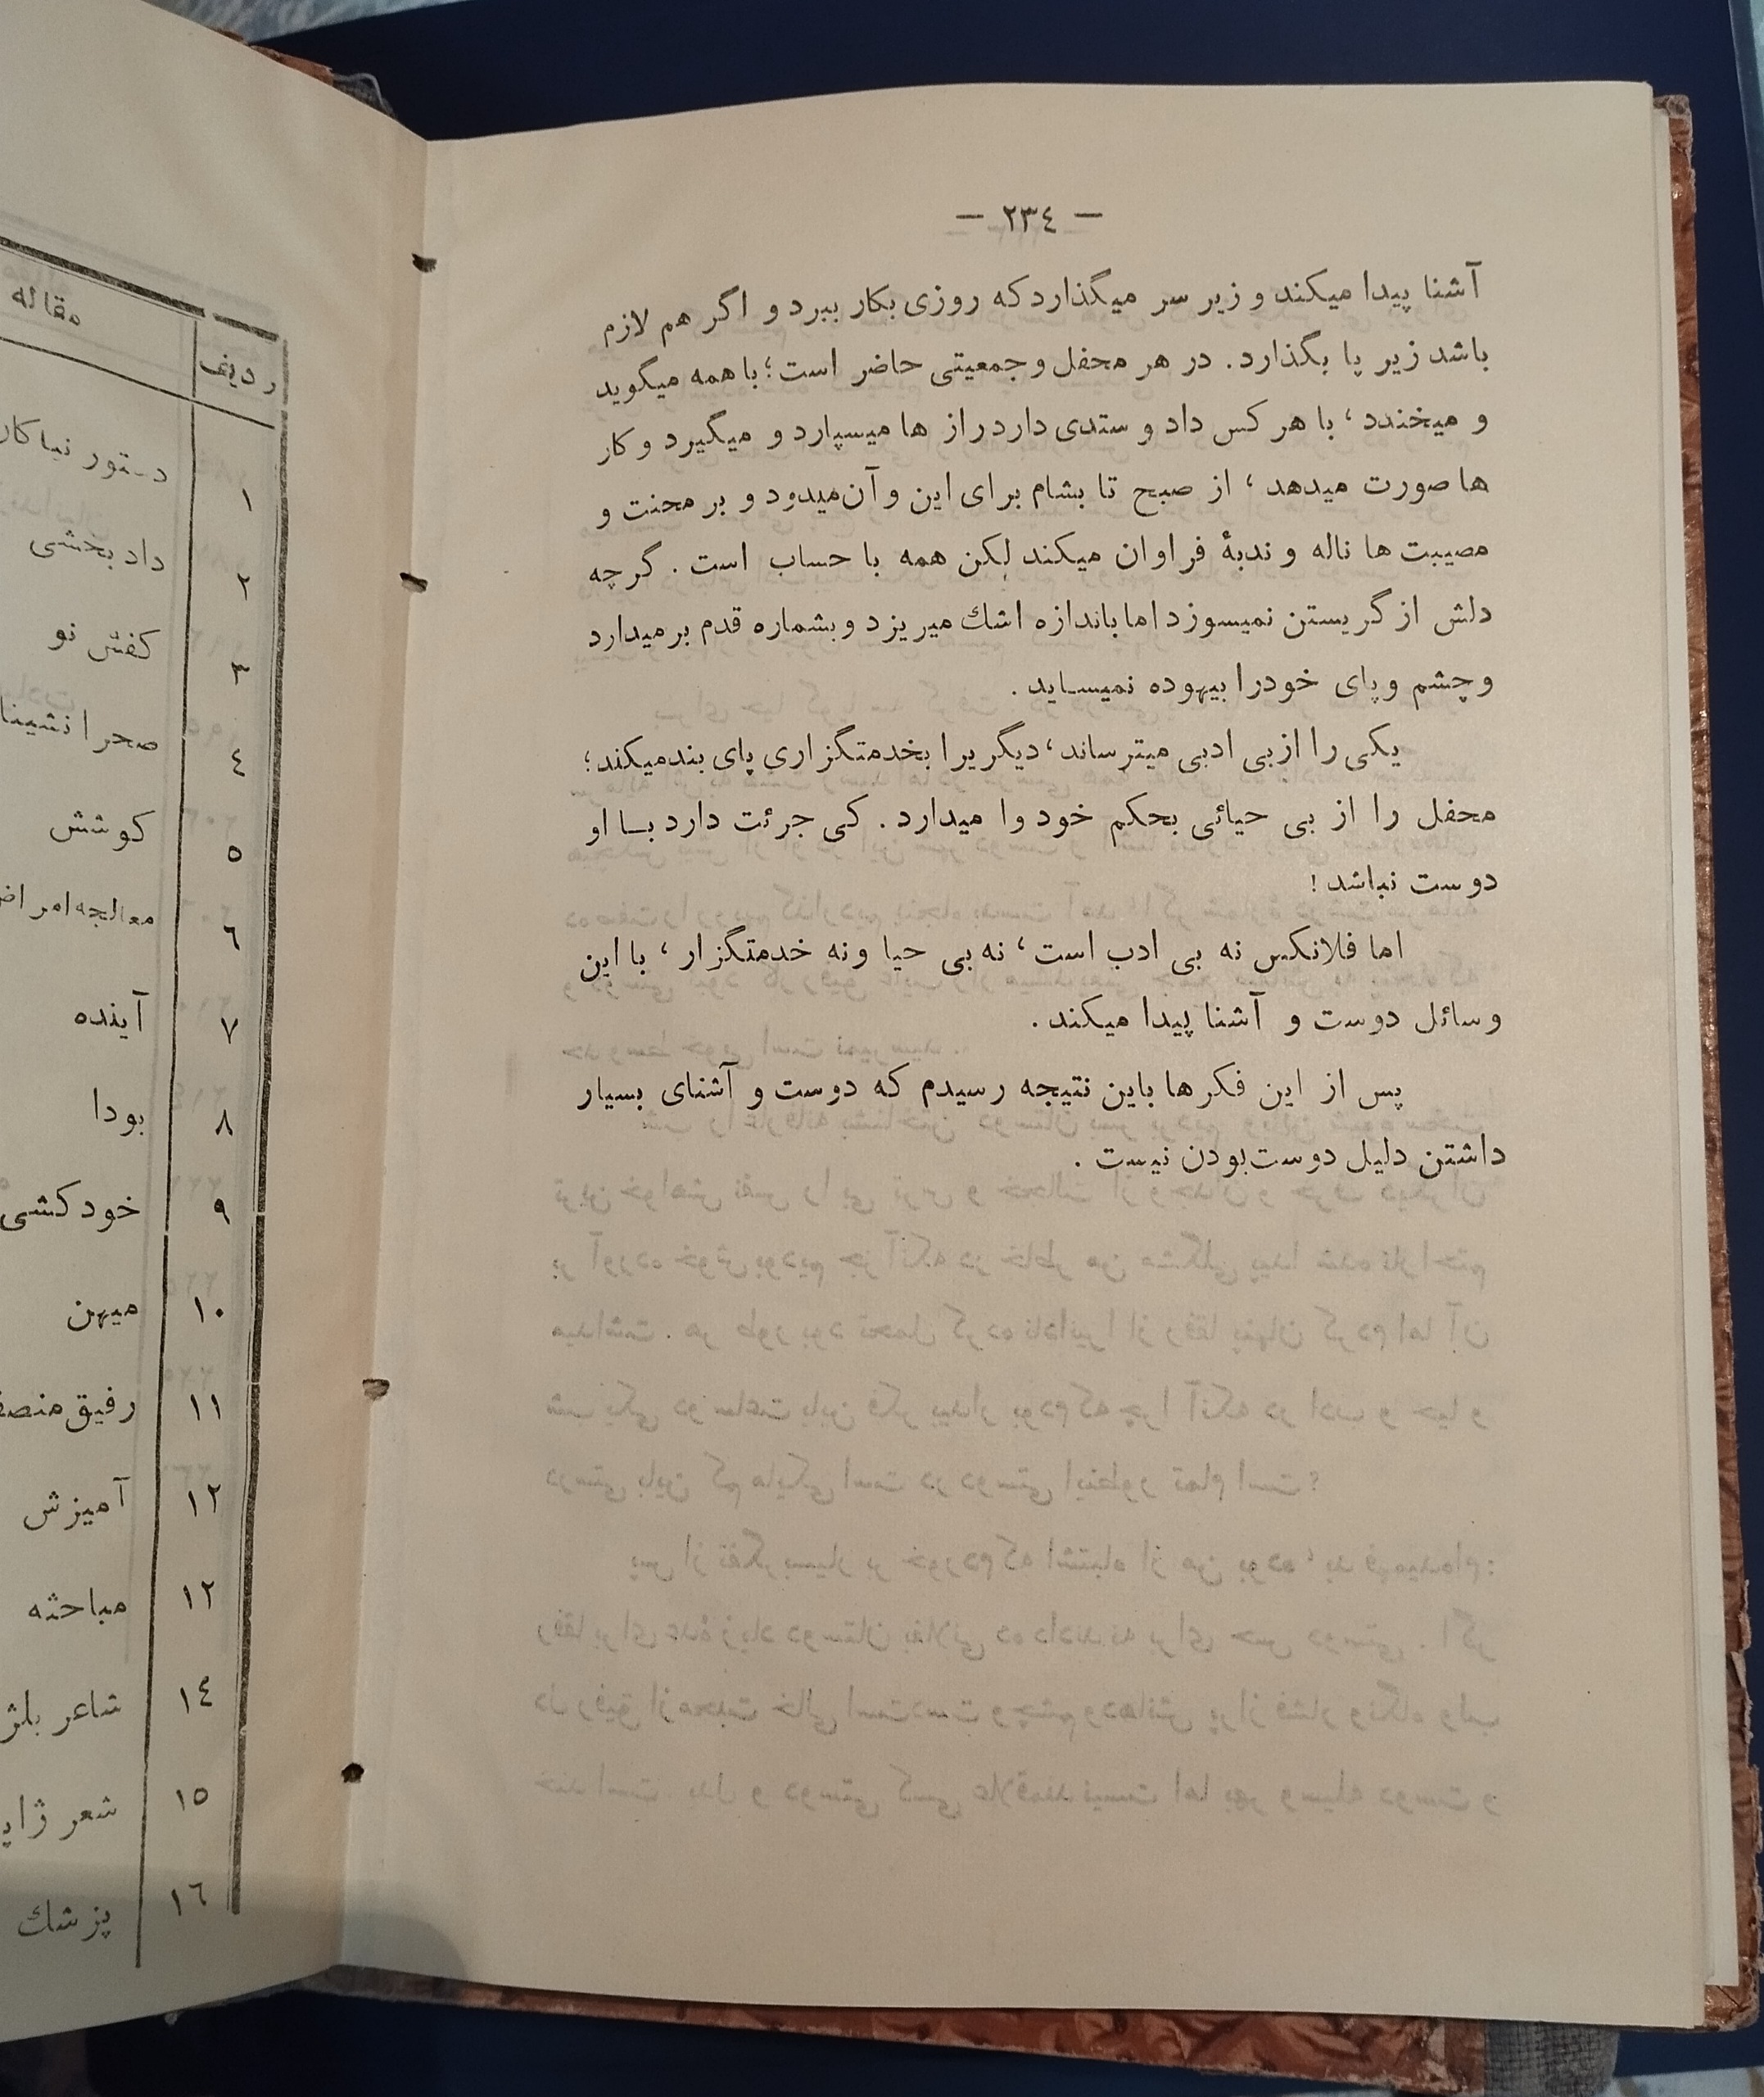 — ٢٣٤ —
آشنا پیدا میکند و زیر سر میگذارد که روزی بکار ببرد و اگر هم لازم
باشد زیر پا بگذارد. در هر محفل و جمعیتی حاضر است؛ با همه میگوید
و میخندد، با هر کس داد و ستدی دارد راز ها میسپارد و میگیرد و کار
ها صورت میدهد، از صبح تا بشام برای این و آن میدود و بر محنت و
مصیبت ها ناله و ندبهٔ فراوان میکند لکن همه با حساب است. گرچه
دلش از گریستن نمیسوزد اما باندازه اشك میریزد و بشماره قدم برمیدارد
و چشم و پای خودرا بیهوده نمیساید.
یکی را از بی ادبی میترساند، دیگریرا بخدمتگزاری پای بند میکند؛
محفل را از بی حیائی بحکم خود وا میدارد. کی جرئت دارد بـا او
دوست نباشد!
اما فلانکس نه بی ادب است، نه بی حیا و نه خدمتگزار، با این
وسائل دوست و آشنا پیدا میکند.
پس از این فکر ها باین نتیجه رسیدم که دوست و آشنای بسیار
داشتن دلیل دوست بودن نیست.
ردیف مقاله
١ دستور نیاکان
٢ داد بخشی
٣ کفش نو
٤ صحرا نشینا
٥ کوشش
٦ معالجه امراض
٧ آینده
٨ بودا
٩ خودکشی
١٠ میهن
١١ رفیق منصف
١٢ آمیزش
١٢ مباحثه
١٤ شاعر بلژ
١٥ شعر ژاپ
١٦ پزشك